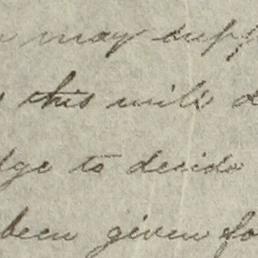 may supp
this will d
dge to decide
been given fo